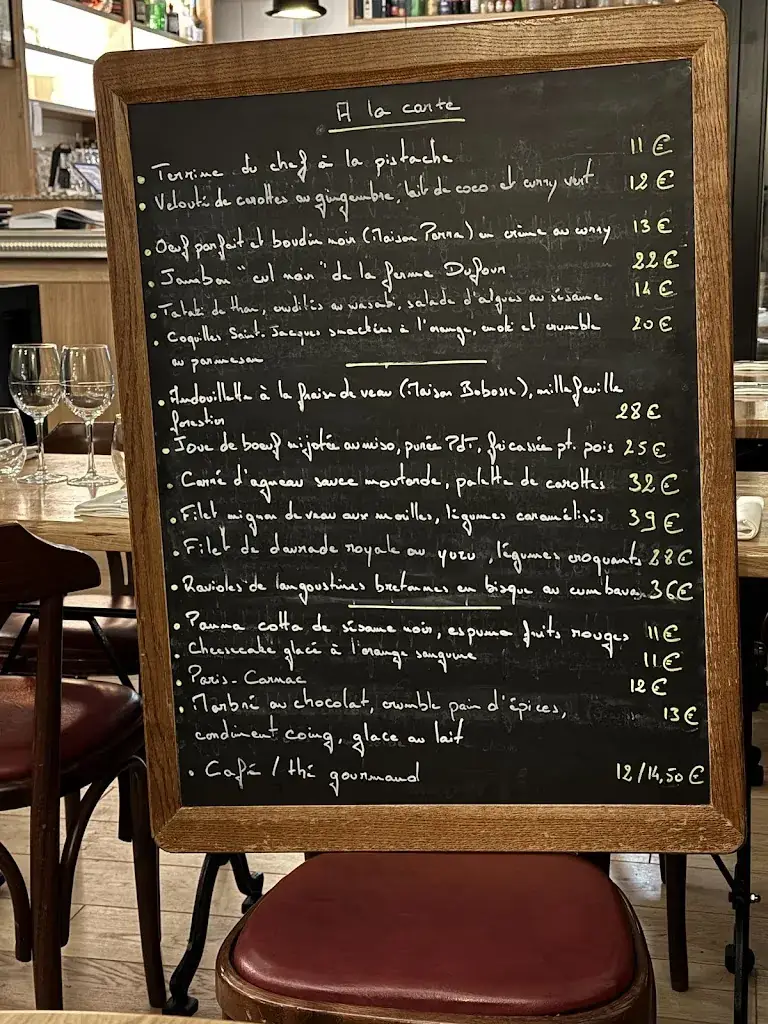 A la carte
• Terrine du chef à la pistache 11€
• Velouté de carottes au gingembre, lait de coco et curry vert 12€
• Oeuf parfait et boudin noir (Maison Parra) en crème au curry 13€
• Jambon "cul noir" de la ferme Dufour 22€
• Tataki de thon, crudités au wasabi, salade d'algues au sésame 14€
• Coquilles Saint-Jacques snackées à l'orange, enoki et crumble 20€
au parmesan
• Andouillette à la fraise de veau (Maison Bobosse), millefeuille
forestier 28€
• Joue de boeuf mijotée au miso, purée PdT, fricassée pt. pois 25€
• Carré d'agneau sauce moutarde, palette de carottes 32€
• Filet mignon de veau aux morilles, légumes caramélisés 39€
• Filet de daurade royale au yuzu, légumes croquants 28€
• Ravioles de langoustines bretonnes en bisque au cumbava 36€
• Panna cotta de sésame noir, espuma fruits rouges 11€
• Cheesecake glacé à l'orange sanguine 11€
• Paris-Carnac 12€
• Marbré au chocolat, crumble pain d'épices, 13€
condiment coing, glace au lait
• Café / thé gourmand 12/14,50€